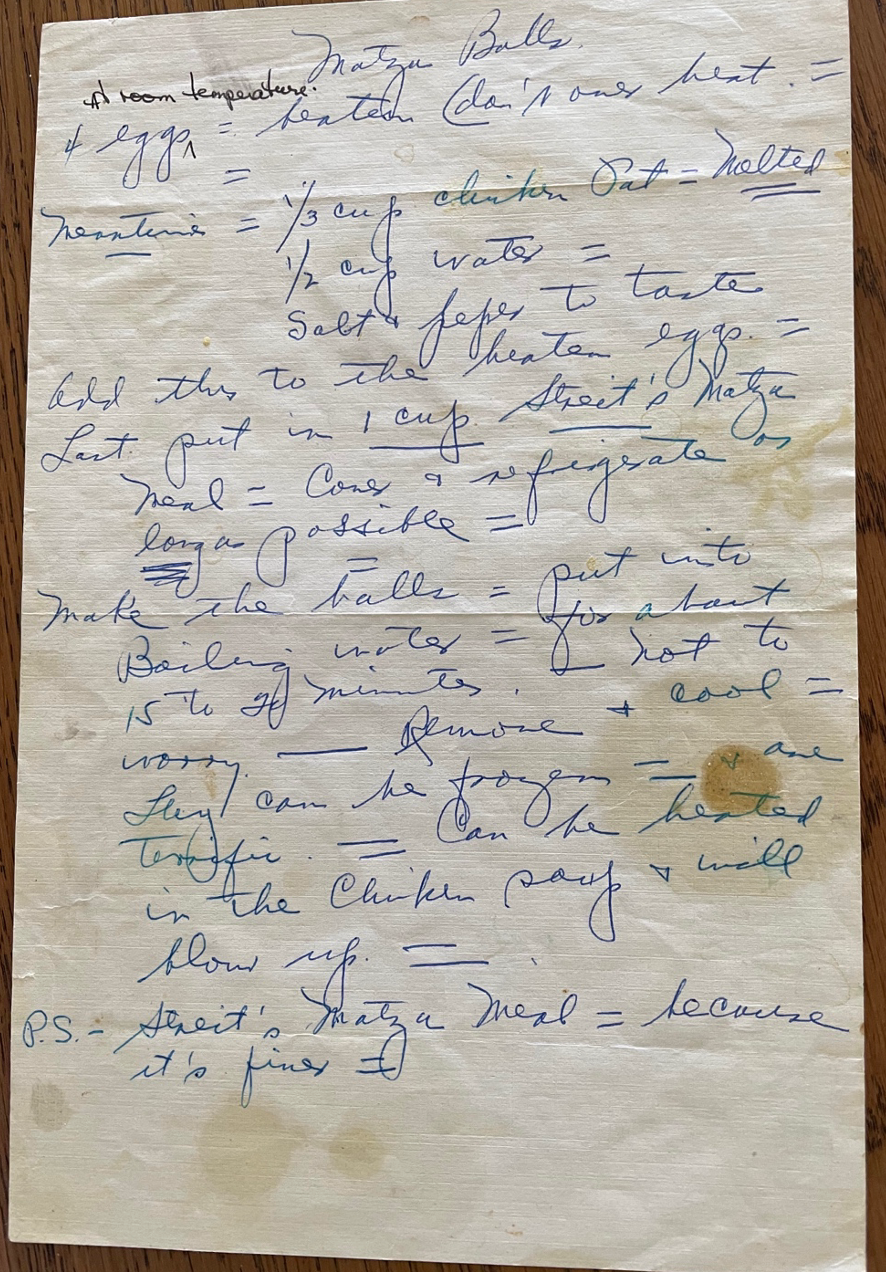 Matza Balls.
At room temperature.
4 eggs ^ = beaten (don't over beat. =
=
Meantime = 1/3 cup chicken Fat = Melted
1/2 cup water =
Salt & peper to taste
Add this to the beaten eggs. =
Last put in 1 cup Streit's Matza
Meal = Cover & refrigerate as
long as possible =
=
Make the balls = put into
Boiling water = for about
15 to 20 minutes. — not to
worry — Remove & cool =
They can be frozen = & are
terrific. = Can be heated
in the Chicken soup & will
blow up. =
P.S. - Streit's Matza Meal = because
it's finer =